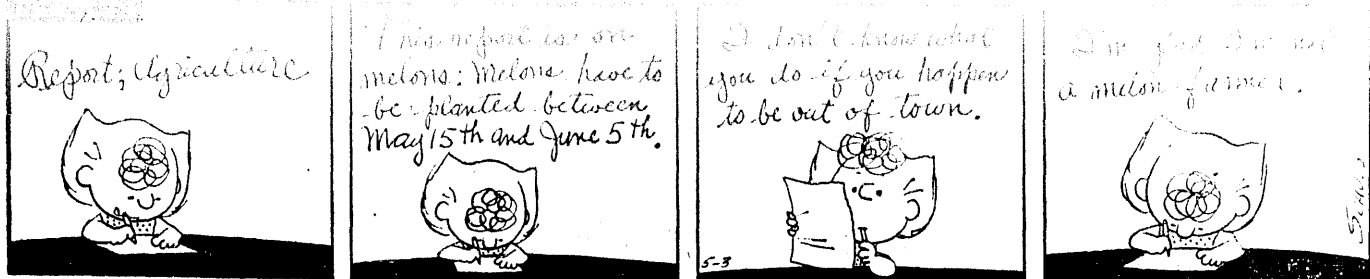 Report; Agriculture
This report is on
melons: Melons have to
be planted between
May 15th and June 5th.
I don't know what
you do if you happen
to be out of town.
5-3
I'm glad I'm not
a melon farmer.